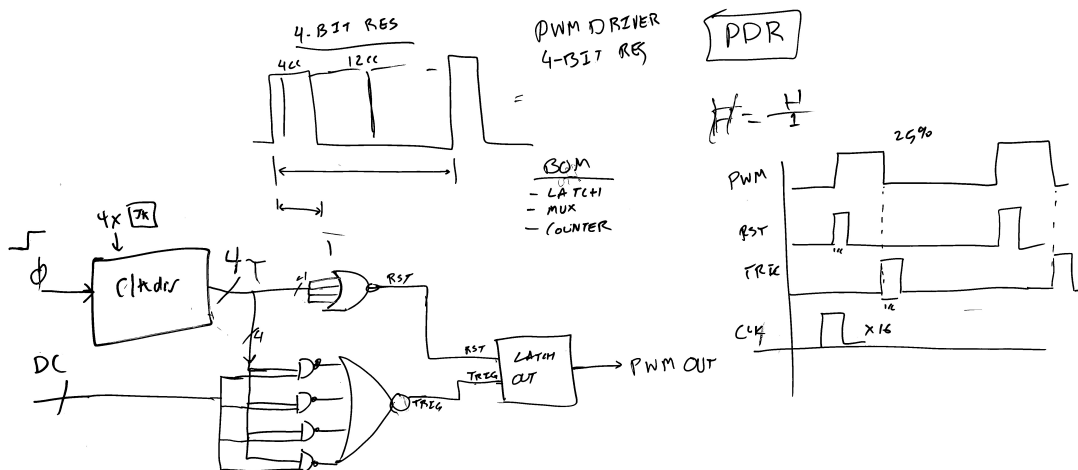 4-BIT RES
4cc 12cc
=
PWM DRIVER
4-BIT RES
PDR
BOM
- LATCH
- MUX
- COUNTER
25%
PWM
RST
1cc
TRIG
1cc
CLK
x16
4x JK
Φ
Clkdiv
4
4
RST
DC
TRIG
RST
TRIG
LATCH
OUT
PWM OUT